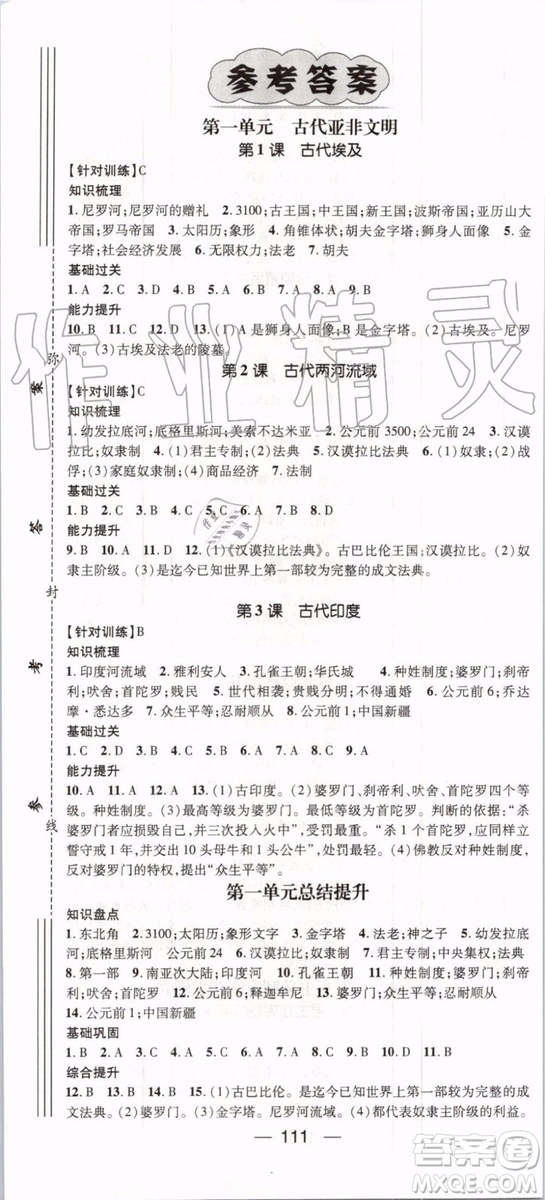 参考答案
第一单元 古代亚非文明
第1课 古代埃及
【针对训练】C
知识梳理
1. 尼罗河;尼罗河的赠礼 2. 3100;古王国;中王国;新王国;波斯帝国;亚历山大
帝国;罗马帝国 3. 太阳历;象形 4. 角锥体状;胡夫金字塔;狮身人面像 5. 金
字塔;社会经济发展 6. 无限权力;法老 7. 胡夫
基础过关
1. A 2. C 3. D 4. B 5. A 6. C 7. D 8. A 9. A
能力提升
10. B 11. B 12. D 13. (1)A是狮身人面像,B是金字塔。(2)古埃及。尼罗
河。(3)古埃及法老的陵墓。
第2课 古代两河流域
【针对训练】C
知识梳理
1. 幼发拉底河;底格里斯河;美索不达米亚 2. 公元前3500;公元前24 3. 汉谟
拉比;奴隶制 4. (1)君主;中央;法典 5. 汉谟拉比法典 6. (1)奴隶;(2)战
俘;(3)家庭奴隶制;(4)商品经济 7. 法制
基础过关
1. D 2. C 3. A 4. B 5. A 6. B 7. B 8. D
能力提升
9. B 10. A 11. D 12. (1)《汉谟拉比法典》。古巴比伦王国;汉谟拉比。(2)奴
隶主阶级。(3)是迄今已知世界上第一部较为完整的成文法典。
第3课 古代印度
【针对训练】B
知识梳理
1. 印度河流域 2. 雅利安人 3. 孔雀王朝;华氏城 4. 种姓制度;婆罗门;刹帝
利;吠舍;首陀罗;贱民 5. 世代相袭;贵贱分明;不得通婚 6. 公元前6;乔达
摩·悉达多 7. 众生平等;忍耐顺从 8. 公元前1;中国新疆
基础过关
1. C 2. A 3. D 4. B 5. C 6. A 7. B 8. C 9. A
能力提升
10. A 11. D 12. D 13. (1)古印度。(2)婆罗门、刹帝利、吠舍、首陀罗四个等
级。种姓制度。(3)最高等级为婆罗门,最低等级为首陀罗。判断的依据:“杀
婆罗门者应自投火中”,处罚最重。“杀1个首陀罗,同杀1条狗一样,只要立
誓守戒一年,并施给婆罗门10头母牛和1头公牛”,处罚最轻。(4)佛教反对种姓制度,
反对婆罗门的特权,提出“众生平等”。
第一单元总结提升
知识盘点
1. 东北角 2. 3100;太阳历;象形文字 3. 法老;神之子 4. 幼发拉底河
5. 底格里斯河 公元前24 6. 汉谟拉比;奴隶制 7. 君主专制;中央集权;法典
8. 第一部 9. 南亚次大陆;印度河 10. 孔雀王朝 11. 婆罗门;刹帝利;
吠舍;首陀罗 12. 公元前6;释迦牟尼 13. 婆罗门;众生平等;忍耐顺从
14. 公元前1;中国新疆
基础巩固
1. B 2. B 3. B 4. A 5. C 6. C 7. D 8. D 9. D 10. D 11. B
综合提升
12. B 13. B 14. B 15. (1)古巴比伦。是迄今已知世界上第一部较为完整的成
文法典。(2)婆罗门。(3)金字塔。尼罗河流域。(4)都代表奴隶主阶级的利益。
111
弥
封
线
参
考
答
案
作业精灵
答案圈
MXQE.COM